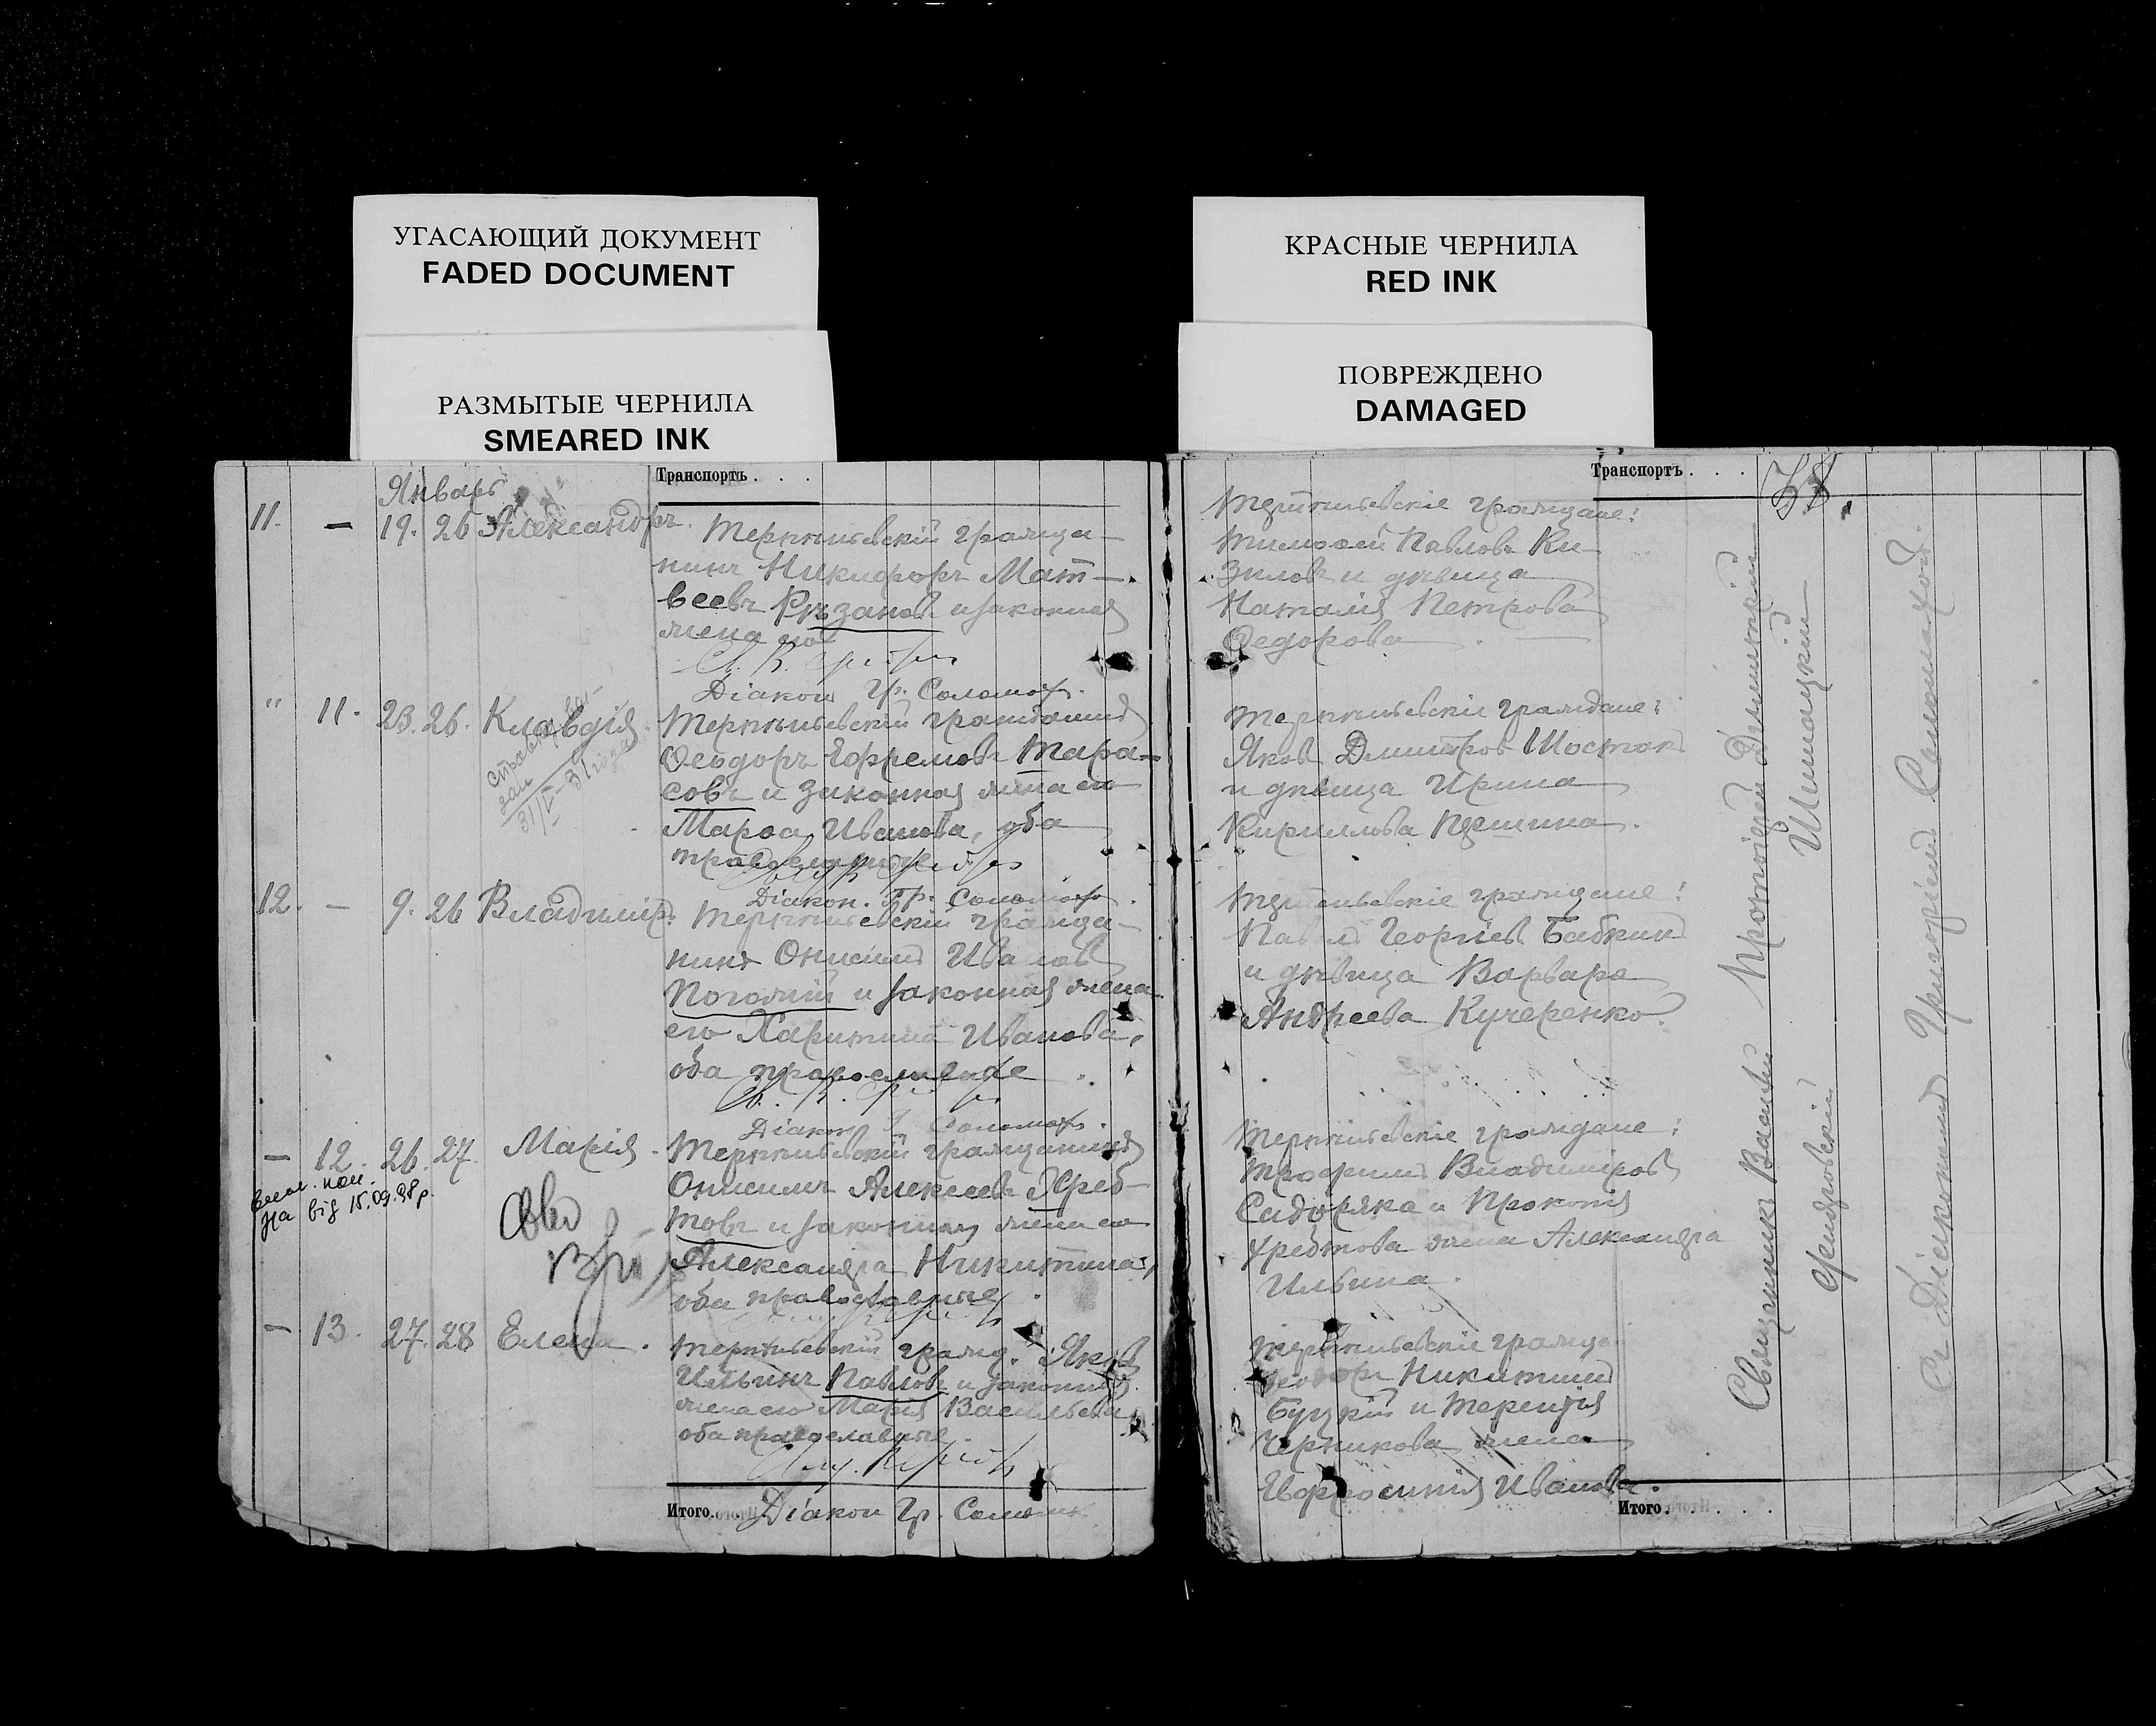 УГАСАЮЩИЙ ДОКУМЕНТ
FADED DOCUMENT
РАЗМЫТЫЕ ЧЕРНИЛА
SMEARED INK
КРАСНЫЕ ЧЕРНИЛА
RED INK
ПОВРЕЖДЕНО
DAMAGED
Транспортъ . . .
Январь
11. — 19. 26 Александръ.
Терпѣньевскій гражда-
нинъ Никифоръ Мат-
веевъ и законная
жена его
Діакон Гр. Соломах.
" 11. 23. 26. Клавдія.
31/V-31 года
Терпѣньевскій гражданинъ
Ѳеодоръ Ефремовъ Тара-
совъ и законная жена его
Марѳа Иванова, оба
православные
Діакон. Гр. Соломах.
12. — 9. 26 Владиміръ.
Терпѣньевскій гражда-
нинъ Онисимъ Иванов
и законная жена
его Харитина Иванова,
оба православные
Діакон Соломах.
— 12. 26. 27. Марія.
від 15.09.98 р.
Терпѣньевскій гражданинъ
Онисимъ Алексеевъ Хреб-
товъ и законная жена его
Александра Никитина,
оба православные
— 13. 27. 28 Елена.
Терпѣньевскій гражд. Яков
Ильинъ Павлов и законная
жена его Марія Васильева,
оба православные.
Итого.
Діакон Гр. Соломах
Транспортъ . . .
38.
Терпѣньевскіе граждане:
Тимоѳей Павлов Ки-
зилов и дѣвица
Наталія Петрова
Ѳедорова
Терпѣньевскіе граждане:
Яков Дмитров Шостак
и дѣвица Ирина
Кириллова
Терпѣньевскіе граждане:
Павел Георгіев Бабкин
и дѣвица Варвара
Андреева Кучеренко.
Терпѣньевскіе граждане:
Трофим Владиміров
Сидоряка и Прокопія
Хребтова жена Александра
Ильина.
Терпѣньевскіе гражда
Никитин
Буцкій и Терентія
Черникова жена
Евфросинія Иванова.
Итого . . . . .
Протоіерей Димитрій
Священникъ Василій
Діаконъ Григорій Соломахой